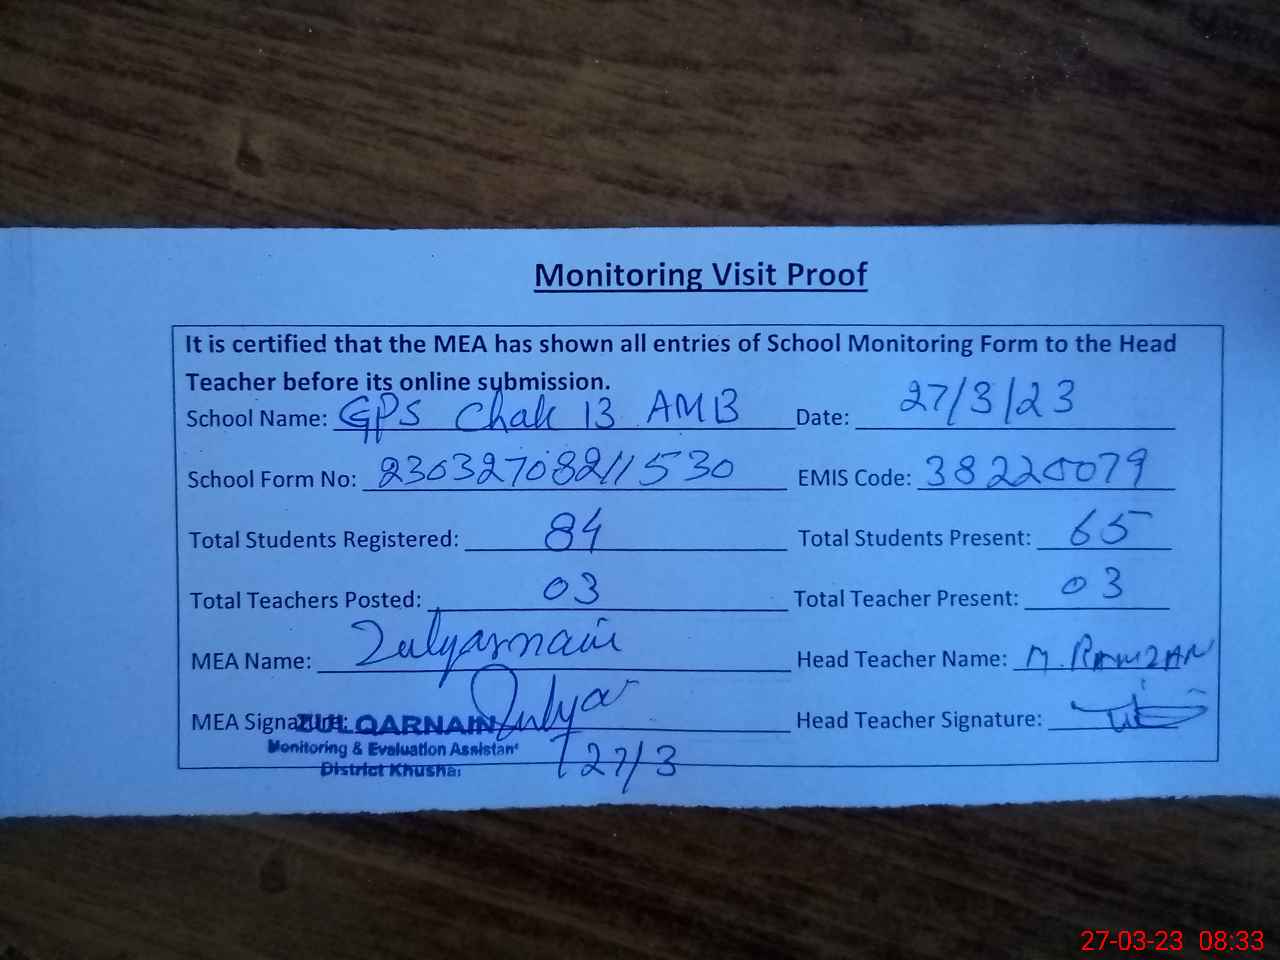 Monitoring Visit Proof
It is certified that the MEA has shown all entries of School Monitoring Form to the Head
Teacher before its online submission.
School Name: GPS Chak 13 AMB Date: 27/3/23
School Form No: 23032708211530 EMIS Code: 38220079
Total Students Registered: 84 Total Students Present: 65
Total Teachers Posted: 03 Total Teacher Present: 03
MEA Name: Zulqarnain Head Teacher Name: M. RAMZAN
MEA Signature: Head Teacher Signature:
ZULQARNAIN
Monitoring & Evaluation Assistant
District Khushab
27/3
27-03-23 08:33